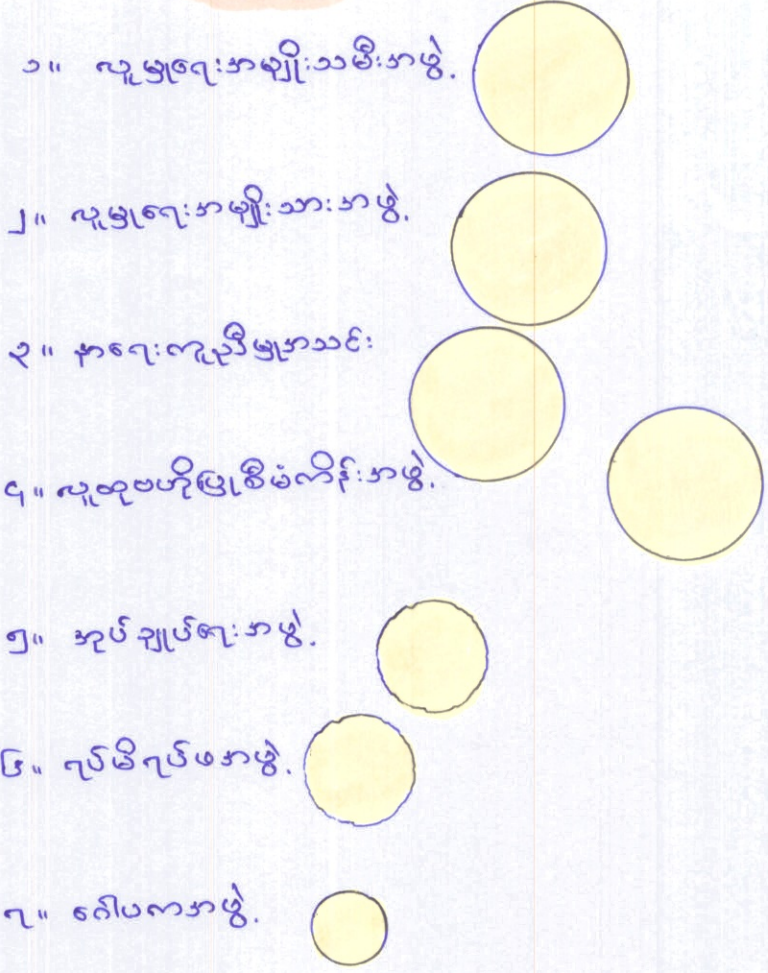 ၁။ လူမှုရေးအမျိုးသမီးအဖွဲ့
၂။ လူမှုရေးအမျိုးသားအဖွဲ့
၃။ နာရေးကူညီမှုအသင်း
၄။ လူထုဗဟိုပြုစီမံကိန်းအဖွဲ့
၅။ အုပ်ချုပ်ရေးအဖွဲ့
၆။ ရပ်မိရပ်ဖအဖွဲ့
၇။ ဂေါပကအဖွဲ့